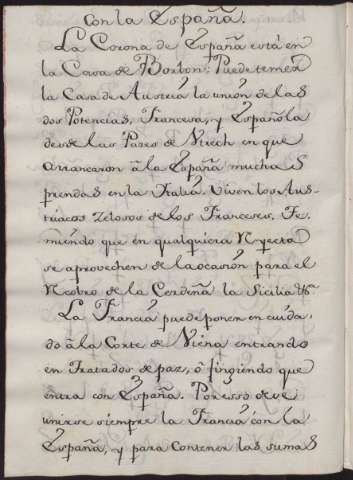 con la España.
La Corona de España está en
la Casa de Borbon: Puede temer
la Casa de Austria la unión de las
dos Potencias, Francesa, y Española
desde las Pazes de Utrech en que
arrancaron â la España muchas
prendas en la Italia. Viven los Aus-
triacos Zelosos de los Franceses. Te-
miendo que en qualquiera
se aprovechen de la ocasión para el
Recobro de la Cerdeña la Sicilia &.
La Francia puede poner en cuida-
do â la Corte de Viena entrando
en Tratados de paz, ô fingiendo que
entra con España. Por esso deve
unirse siempre la Francia con la
España, y para contener las sumas